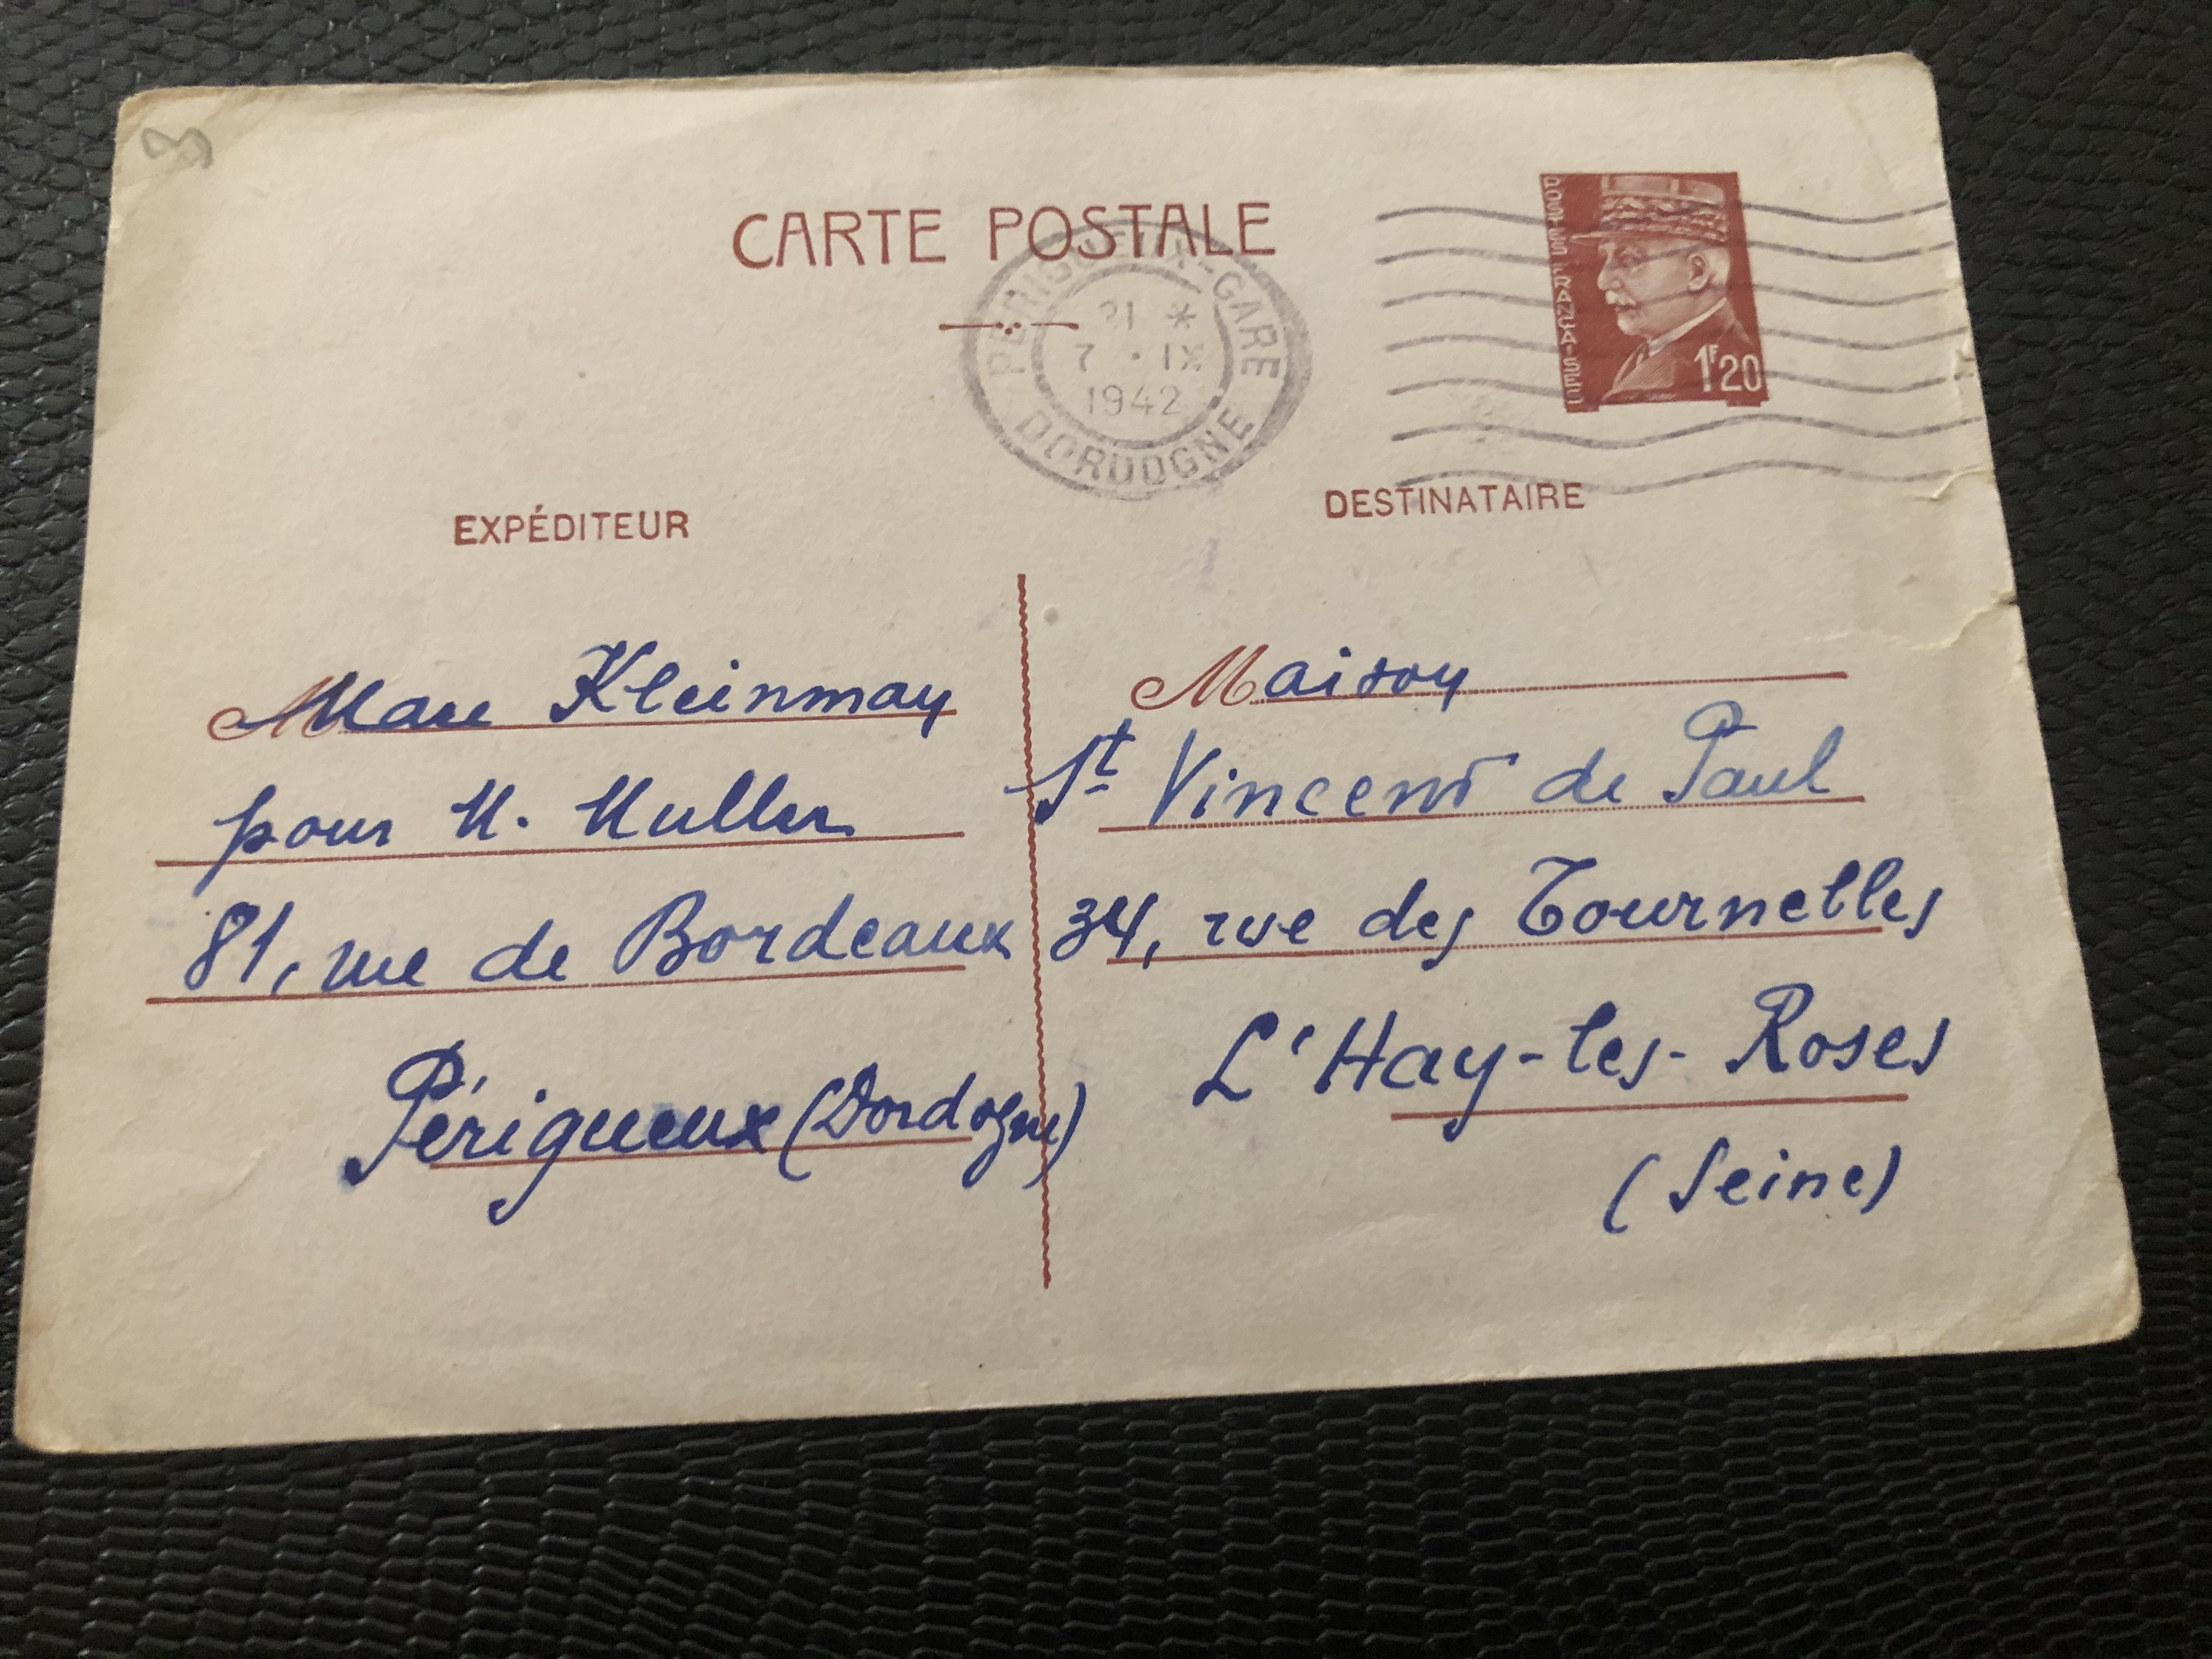 CARTE POSTALE
PÉRIGUEUX-GARE
21 *
7 • IX
1942
DORDOGNE
POSTES FRANÇAISES
1F20
EXPÉDITEUR
Kleinman
pour M. Muller
81, rue de Bordeaux
Périgueux (Dordogne)
DESTINATAIRE
Maison
St Vincent de Paul
34, rue des Tournelles
L'Hay-les-Roses
(Seine)